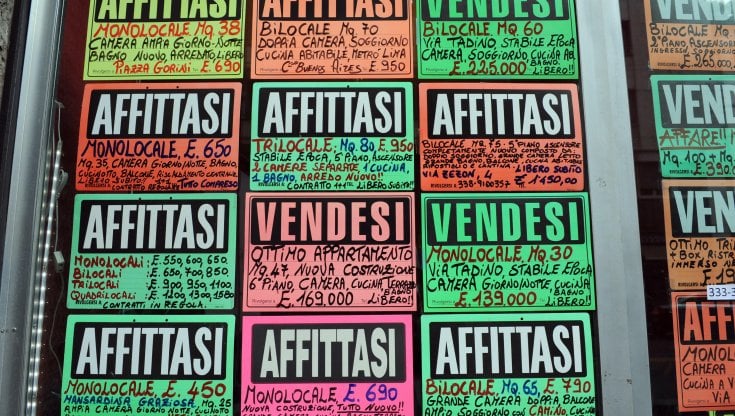 AFFITTASI
MONOLOCALE MQ. 38
CAMERA AMPIA GIORNO-NOTTE
BAGNO NUOVO, ARREDATO LIBERO
PIAZZA GORINI E. 690
AFFITTASI
BILOCALE MQ. 70
DOPPIA CAMERA, SOGGIORNO
CUCINA ABITABILE, METRO LINEA
C.so BUENOS AIRES E. 950
VENDESI
BILOCALE MQ. 60
VIA TADINO, STABILE EPOCA
CAMERA, SOGGIORNO, CUCINA AB.
BAGNO
E. 225.000 LIBERO!!
AFFITTASI
MONOLOCALE, E. 650
MQ. 35, CAMERA GIORNO/NOTTE, BAGNO,
CUCINOTTO, BALCONE, RISCALDAMENTO CENTRALE
LIBERO SUBITO!!
CONTRATTO REGOLARE TUTTO COMPRESO
AFFITTASI
TRILOCALE, MQ. 80, E. 950
STABILE EPOCA, 5°PIANO, ASCENSORE
2 CAMERE SEPARATE, 1 CUCINA,
1 BAGNO, ARREDO NUOVO!!
CONTRATTO LIBERO SUBITO!!
AFFITTASI
BILOCALE, MQ. 75 - 5°PIANO ASCENSORE
COMPLETAMENTE NUOVO COMPOSTO DA:
DOPPIO SOGGIORNO, GRANDE CAMERA LETTO
2 GRANDE BAGNO, BALCONE, CUCINA ABITABILE,
RIPOSTIGLIO LIBERO SUBITO
VIA ZEZON, 4
338-9100357 E 1150,00
AFFITTASI
MONOLOCALI: E. 550, 600, 650,
BILOCALI: E. 650, 700, 850,
TRILOCALI: E. 900, 950, 1100,
QUADRILOCALI: E. 1200, 1300, 1580
CONTRATTI IN REGOLA.
VENDESI
OTTIMO APPARTAMENTO
MQ. 47, NUOVA COSTRUZIONE
6°PIANO, CAMERA, CUCINA, TERRAZZO
BAGNO
E. 169.000 LIBERO!!
VENDESI
MONOLOCALE, MQ. 30
VIA TADINO, STABILE EPOCA
CAMERA GIORNO/NOTTE, CUCINA
BAGNO
E. 139.000 LIBERO!!
AFFITTASI
MONOLOCALE, E. 450
MANSARDINA GRAZIOSA
AMPIA CAMERA GIORNO NOTTE, CUCINOTTO
AFFITTASI
MONOLOCALE E. 690
NUOVA COSTRUZIONE, TUTTO NUOVO!!
AFFITTASI
BILOCALE, MQ. 65, E. 790
GRANDE CAMERA DOPPIA, BALCONE
AMPIO SOGGIORNO CON CAMINO, CUCINA
VENDESI
VEND
AFFARE!!
MQ. 100 +
E. 390
VEN
OTTIMO TRIL
+ BOX, RISTR
IMMERSO NE
333-3
AFFI
MONOLOCALE
CAMERA
CUCINA A V
VIA